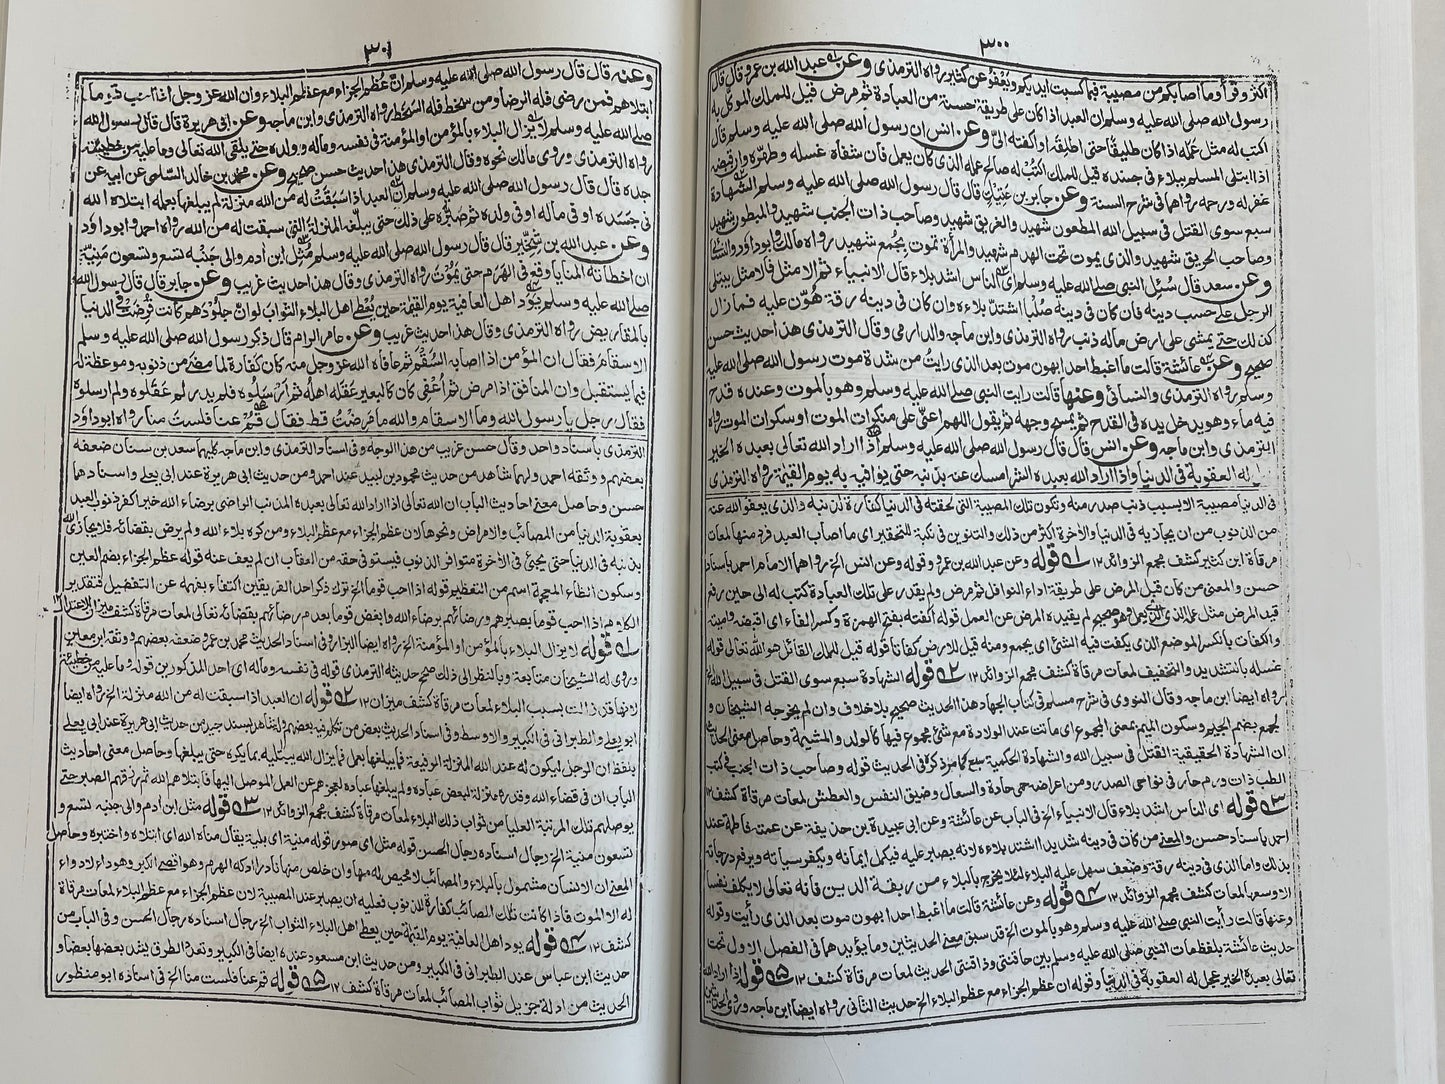 ٣٠٠
اکثر وقرأ وما اصابکم من مصیبة فبما کسبت ایدیکم ویعفو عن کثیر رواه الترمذی وعن عبد الله بن عمرو قال قال
رسول الله صلی الله علیه وسلم ان العبد اذا کان علی طریقة حسنة من العبادة ثم مرض قیل للملك الموکل به
اکتب له مثل عمله اذا کان طلیقا حتی اطلقه او اکفته الی وعن انس ان رسول الله صلی الله علیه وسلم قال
اذا ابتلی المسلم ببلاء فی جسده قیل للملك اکتب له صالح عمله الذی کان یعمل فان شفاه غسله وطهره وان قبضه
غفر له ورحمه رواهما فی شرح السنة وعن جابر بن عتیك قال قال رسول الله صلی الله علیه وسلم الشهادة
سبع سوی القتل فی سبیل الله المطعون شهید والغریق شهید وصاحب ذات الجنب شهید والمبطون شهید
وصاحب الحریق شهید والذی یموت تحت الهدم شهید والمرأة تموت بجمع شهید رواه مالك وابو داود والنسائی
وعن سعد قال سئل النبی صلی الله علیه وسلم ای الناس اشد بلاء قال الانبیاء ثم الامثل فالامثل یبتلی
الرجل علی حسب دینه فان کان فی دینه صلبا اشتد بلاءه وان کان فی دینه رقة هون علیه فما زال
کذلك حتی یمشی علی الارض ماله ذنب رواه الترمذی وابن ماجه والدارمی وقال الترمذی هذا حدیث حسن
صحیح وعن عائشة قالت ما اغبط احدا بهون موت بعد الذی رایت من شدة موت رسول الله صلی الله علیه
وسلم رواه الترمذی والنسائی وعنها قالت رایت النبی صلی الله علیه وسلم وهو بالموت وعنده قدح
فیه ماء وهو یدخل یده فی القدح ثم یمسح وجهه ثم یقول اللهم اعنی علی منکرات الموت او سکرات الموت رواه
الترمذی وابن ماجه وعن انس قال قال رسول الله صلی الله علیه وسلم اذا اراد الله تعالی بعبده الخیر
له العقوبة فی الدنیا واذا اراد الله بعبده الشر امسك عنه بذنبه حتی یوافیه به یوم القیمة رواه الترمذی
فی الدنیا مصیبة الا بسبب ذنب صدر منه وتکون تلك المصیبة التی لحقته فی الدنیا کفارة لذنبه والذی یعفو الله عنه
من الذنوب من ان یجازیه فی الدنیا والآخرة اکثر من ذلك والتنوین فی نکبة للتحقیر ای ما اصاب العبد فرحة منها لمعات
مرقاة ابن کثیر کشف مجمع الزوائد ١٢ ٥١ قوله وعن عبد الله بن عمرو وقوله وعن انس الخ رواهما الامام احمد باسناد
حسن والمعنی من کان قبل المرض علی طریقة اداء النوافل ثم مرض ولم یقدر علی تلك العبادة کتب له الی حین رفع
قید المرض مثل عمله الذی لم یقیده المرض عن العمل قوله اکفته بفتح الهمزة وکسر الفاء ای اقبضه وامیته
والکفات بالکسر الموضع الذی یکفت فیه الشئ ای یجمع ومنه قیل للارض کفاتا قوله قیل للملك القائل هو الله تعالی قوله
غسله بالتشدید والتخفیف لمعات مرقاة کشف مجمع الزوائد ١٢ ٥٢ قوله الشهادة سبع سوی القتل فی سبیل الله
رواه ایضا ابن ماجه وقال النووی فی شرح مسلم فی کتاب الجهاد هذا الحدیث صحیح بلا خلاف وان لم یخرجه الشیخان و
بجمع بضم الجیم وسکون المیم بمعنی المجموع ای ماتت عند الولادة مع شئ مجموع فیها کالولد والمشیمة وحاصل معنی الحدیث
ان الشهادة الحقیقیة القتل فی سبیل الله والشهادة الحکمیة سبع کما مر ذکر فی الحدیث قوله وصاحب ذات الجنب فی کتب
الطب ذات ورم حار فی نواحی الصدر ومن اعراضه حمی حادة والسعال وضیق النفس والعطش لمعات مرقاة کشف ١٢
٥٣ قوله ای الناس اشد بلاء قال الانبیاء الخ فی الباب عن عائشة وعن ابی عبیدة بن حذیفة عن عمته فاطمة عند
احمد باسناد حسن والمعنی من کان فی دینه شدیدا اشتد بلاءه لانه یصبر علیه فیکمل ایمانه ویکفر سیاته ویرفع درجاته
بذلك واما الذی فی دینه رقة وضعف سهل علیه البلاء لئلا یخرج بالبلاء من ربقة الدین فانه تعالی لا یکلف نفسا
الا وسعها لمعات کشف مجمع الزوائد ١٢ ٥٤ قوله وعن عائشة قالت ما اغبط احدا بهون موت بعد الذی رأیت وقوله
وعنها قالت رأیت النبی صلی الله علیه وسلم وهو بالموت الخ قد سبق معنی الحدیثین وما یؤیدهما فی الفصل الاول تحت
حدیث عائشة بلفظ مات النبی صلی الله علیه وسلم بین حاقنتی وذاقنتی الحدیث لمعات مرقاة کشف ١٢ ٥٥ قوله اذا اراد الله
تعالی بعبده الخیر عجل له العقوبة فی الدنیا وقوله ان عظم الجزاء مع عظم البلاء الخ حدیث الثانی رواه ایضا ابن ماجه وروی
٣٠١
وعنه قال قال رسول الله صلی الله علیه وسلم ان عظم الجزاء مع عظم البلاء وان الله عز وجل اذا احب قوما
ابتلاهم فمن رضی فله الرضا ومن سخط فله السخط رواه الترمذی وابن ماجه وعن ابی هریرة قال قال رسول الله
صلی الله علیه وسلم لا یزال البلاء بالمؤمن او المؤمنة فی نفسه وماله وولده حتی یلقی الله تعالی وما علیه من خطیئة
رواه الترمذی وروی مالك نحوه وقال الترمذی هذا حدیث حسن صحیح وعن محمد بن خالد السلمی عن ابیه عن
جده قال قال رسول الله صلی الله علیه وسلم ان العبد اذا سبقت له من الله منزلة لم یبلغها بعمله ابتلاه الله
فی جسده او فی ماله او فی ولده ثم صبره علی ذلك حتی یبلغه المنزلة التی سبقت له من الله رواه احمد وابو داود
وعن عبد الله بن شخیر قال قال رسول الله صلی الله علیه وسلم مثل ابن آدم والی جنبه تسع وتسعون منیة
ان اخطأته المنایا وقع فی الهرم حتی یموت رواه الترمذی وقال هذا حدیث غریب وعن جابر قال قال رسول الله
صلی الله علیه وسلم یود اهل العافیة یوم القیمة حین یعطی اهل البلاء الثواب لو ان جلودهم کانت قرضت فی الدنیا
بالمقاریض رواه الترمذی وقال هذا حدیث غریب وعن عامر الرام قال ذکر رسول الله صلی الله علیه وسلم
الاسقام فقال ان المؤمن اذا اصابه السقم ثم عافاه الله عز وجل منه کان کفارة لما مضی من ذنوبه وموعظة له
فیما یستقبل وان المنافق اذا مرض ثم اعفی کان کالبعیر عقله اهله ثم ارسلوه فلم یدر لم عقلوه ولم ارسلوه
فقال رجل یا رسول الله وما الاسقام والله ما مرضت قط فقال قم عنا فلست منا رواه ابو داود
الترمذی باسناد واحد وقال حسن غریب من هذا الوجه وفی اسناد الترمذی وابن ماجه کلیهما سعد بن سنان ضعفه
بعضهم ووثقه احمد ولهما شاهد من حدیث محمود بن لبید عند احمد ومن حدیث ابی هریرة عند ابی یعلی واسنادهما
حسن وحاصل معنی احادیث الباب ان الله تعالی اذا اراد الله تعالی بعبده المذنب الراضی برضاء الله خیرا کفر ذنوب العبد
بعقوبة الدنیا من المصائب والامراض ونحوها لان عظم الجزاء مع عظم البلاء ومن کره بلاء الله ولم یرض بقضائه فلا یجازی الله
بذنبه فی الدنیا حتی یجئ فی الآخرة متوافر الذنوب فیستوفی حقه من العقاب ان لم یعف عنه قوله عظم الجزاء بضم العین
وسکون الظاء المعجمة اسم من التعظیم قوله اذا احب قوما الخ ترك ذکر احد الفریقین اکتفاء بفهمه عن التفصیل فتقدیر
الکلام اذا احب قوما بصبرهم ورضائهم برضاء الله وابغض قوما بعدم رضائهم بقضائه تعالی لمعات مرقاة کشف میزان الاعتدال ١٢
٥١ قوله لا یزال البلاء بالمؤمن او المؤمنة الخ رواه ایضا البزار وفی اسناد الحدیث محمد بن عمرو ضعفه بعضهم ووثقه ابن معین
وروی له الشیخان متابعة وبالنظر الی ذلك صحح حدیثه الترمذی قوله فی نفسه وماله ای احد المذکورین قوله وما علیه من خطیئة
لانها قد زالت بسبب البلاء لمعات مرقاة کشف میزان ١٢ ٥٢ قوله ان العبد اذا سبقت له من الله منزلة الخ رواه ایضا
ابو یعلی والطبرانی فی الکبیر والاوسط وفی اسناد الحدیث بعض من تکلم فیه بعضهم وله شاهد بسند جید من حدیث ابی هریرة عند ابی یعلی
بلفظ ان الرجل لیکون له عند الله المنزلة الرفیعة فما یبلغها بعمل فما یزال الله یبتلیه بما یکره حتی یبلغها وحاصل معنی احادیث
الباب ان فی قضاء الله وقدره منزلة لبعض عباده ولم یبلغها عباده لعجزهم عن العمل الموصل الیها فابتلاهم الله ثم رزقهم الصبر حتی
یوصلهم تلك المرتبة العلیا من ثواب ذلك البلاء لمعات مرقاة کشف مجمع الزوائد ١٢ ٥٣ قوله مثل ابن آدم والی جنبه تسع و
تسعون منیة الخ رجال اسناده رجال الحسن قوله مثل ای صور قوله منیة ای بلیة یقال مناه الله ای ابتلاه واختبره وحاصل
المعنی ان الانسان مشمول بالبلاء والمصائب لا محیص له منها وان خلص منها نادرا ادرکه الهرم وهو اقصی الکبر وهو داء لا دواء
له الا الموت فاذا کانت تلك المصائب کفارة للذنوب فعلیه ان یصبر عند المصیبة لان عظم الجزاء مع عظم البلاء لمعات مرقاة
کشف ١٢ ٥٤ قوله یود اهل العافیة یوم القیمة حین یعطی اهل البلاء الثواب الخ رجال اسناده رجال الحسن وفی الباب من
حدیث ابن عباس عند الطبرانی فی الکبیر ومن حدیث ابن مسعود عنده ایضا فی الکبیر وتعدد الطرق یشد بعضها بعضا و
الحدیث من ادلة جزیل ثواب المصائب لمعات مرقاة کشف ١٢ ٥٥ قوله قم عنا فلست منا الخ فی اسناده ابو منظور